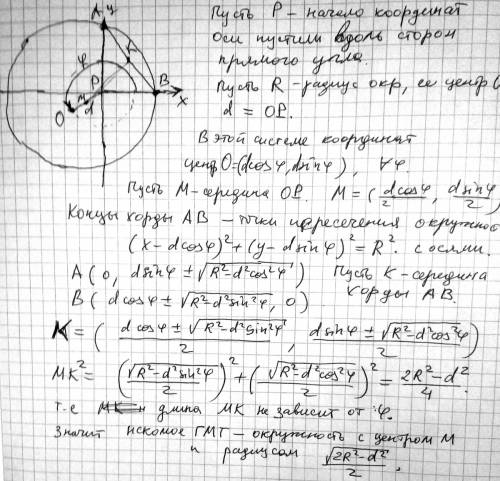 A y
φ
K
P
B
x
M
O
d
Пусть P – начало координат
оси пустили вдоль сторон
прямого угла.
Пусть R – радиус окр, ее центр
d = OP.
В этой системе координат
центр O=(dcosφ, dsinφ), ∀φ.
Пусть M – середина OP. M = (dcosφ/2, dsinφ/2)
Концы хорды AB – точки пересечения окружнос
(x – dcosφ)² + (y – dsinφ)² = R². с осями.
A (0, dsinφ ± √(R²–d²cos²φ)) Пусть K – середина
B (dcosφ ± √(R²–d²sin²φ), 0) хорды AB.
K = ((dcosφ ± √(R²–d²sin²φ))/2, (dsinφ ± √(R²–d²cos²φ))/2)
MK² = (√(R²–d²sin²φ)/2)² + (√(R²–d²cos²φ)/2)² = (2R²–d²)/4.
т.е длина MK не зависит от φ.
Значит искомое ГМТ – окружность с центром M
и радиусом √(2R²–d²)/2.